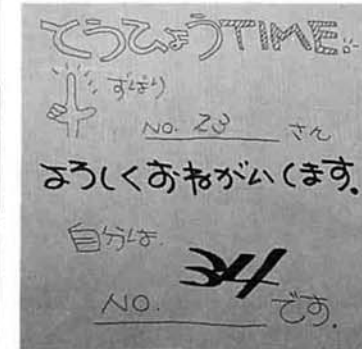 とうひょうTIME!!
ずばり
NO. 23 さん
よろしくおねがいします。
自分は
34
NO. です。